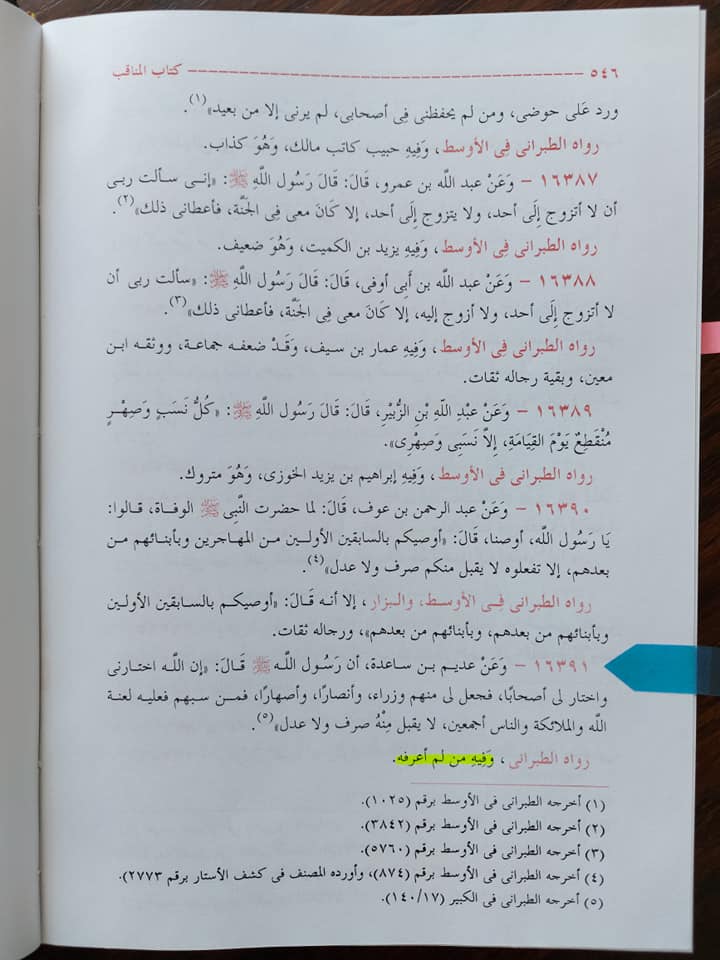 ٥٤٦ ــــــــــــــــــــــــــــــــــــــــــ كتاب المناقب
ورد عَلى حوضى، ومن لم يحفظنى فِى أصحابى، لم يرنى إلا من بعيد»(١).
رواه الطبرانى فِى الأوسط، وَفِيهِ حبيب كاتب مالك، وَهُوَ كذاب.
١٦٣٨٧ – وَعَنْ عبد الله بن عمرو، قَالَ: قَالَ رَسُول اللهِ ﷺ: «إنى سألت ربى
أن لا أتزوج إِلَى أحد، ولا يتزوج إِلَى أحد، إلا كَانَ معى فِى الجَنَّة، فأعطانى ذلك»(٢).
رواه الطبرانى فِى الأوسط، وَفِيهِ يزيد بن الكميت، وَهُوَ ضعيف.
١٦٣٨٨ – وَعَنْ عبد الله بن أَبِى أوفى، قَالَ: قَالَ رَسُول اللهِ ﷺ: «سألت ربى أن
لا أتزوج إِلَى أحد، ولا أزوج إليه، إلا كَانَ معى فِى الجَنَّة، فأعطانى ذلك»(٣).
رواه الطبرانى فِى الأوسط، وَفِيهِ عمار بن سيف، وَقَدْ ضعفه جماعة، ووثقه ابن
معين، وبقية رجاله ثقات.
١٦٣٨٩ – وَعَنْ عبْدِ اللهِ بْنِ الزُّبَيْرِ، قَالَ: قَالَ رَسُول اللهِ ﷺ: «كُلُّ نَسَبٍ وَصِهْرٍ
مُنْقَطِعٌ يَوْمَ القِيَامَةِ، إِلاَّ نَسَبِى وَصِهْرِى».
رواه الطبرانى فِى الأوسط، وَفِيهِ إبراهيم بن يزيد الخوزى، وَهُوَ متروك.
١٦٣٩٠ – وَعَنْ عبد الرحمن بن عوف، قَالَ: لما حضرت النَّبِى ﷺ الوفاة، قالوا:
يَا رَسُول الله، أوصنا، قَالَ: «أوصيكم بالسابقين الأولين من المهاجرين وبأبنائهم من
بعدهم، إلا تفعلوه لا يقبل منكم صرف ولا عدل»(٤).
رواه الطبرانى فِى الأوسط، والبزار، إلا أنه قَالَ: «أوصيكم بالسابقين الأولين
وبأبنائهم من بعدهم، وبأبنائهم من بعدهم»، ورجاله ثقات.
١٦٣٩١ – وَعَنْ عديم بن ساعدة، أن رَسُول اللهِ ﷺ قَالَ: «إن الله اختارنى
واختار لى أصحابًا، فجعل لى منهم وزراء، وأنصارًا، وأصهارًا، فمن سبهم فعليه لعنة
الله والملائكة والناس أجمعين، لا يقبل مِنْهُ صرف ولا عدل»(٥).
رواه الطبرانى، وَفِيهِ من لم أعرفه.
(١) أخرجه الطبرانى فى الأوسط برقم (١٠٢٥).
(٢) أخرجه الطبرانى فى الأوسط برقم (٣٨٤٢).
(٣) أخرجه الطبرانى فى الأوسط برقم (٥٧٦٠).
(٤) أخرجه الطبرانى فى الأوسط برقم (٨٧٤)، وأورده المصنف فى كشف الأستار برقم (٢٧٧٣).
(٥) أخرجه الطبرانى فى الكبير (١٤٠/١٧).